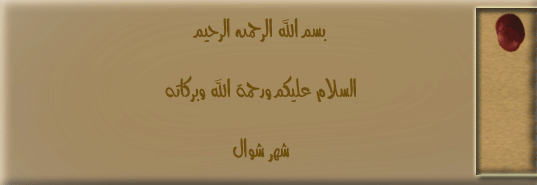 بسم الله الرحمن الرحيم
السلام عليكم ورحمة الله وبركاته
شهر شوال